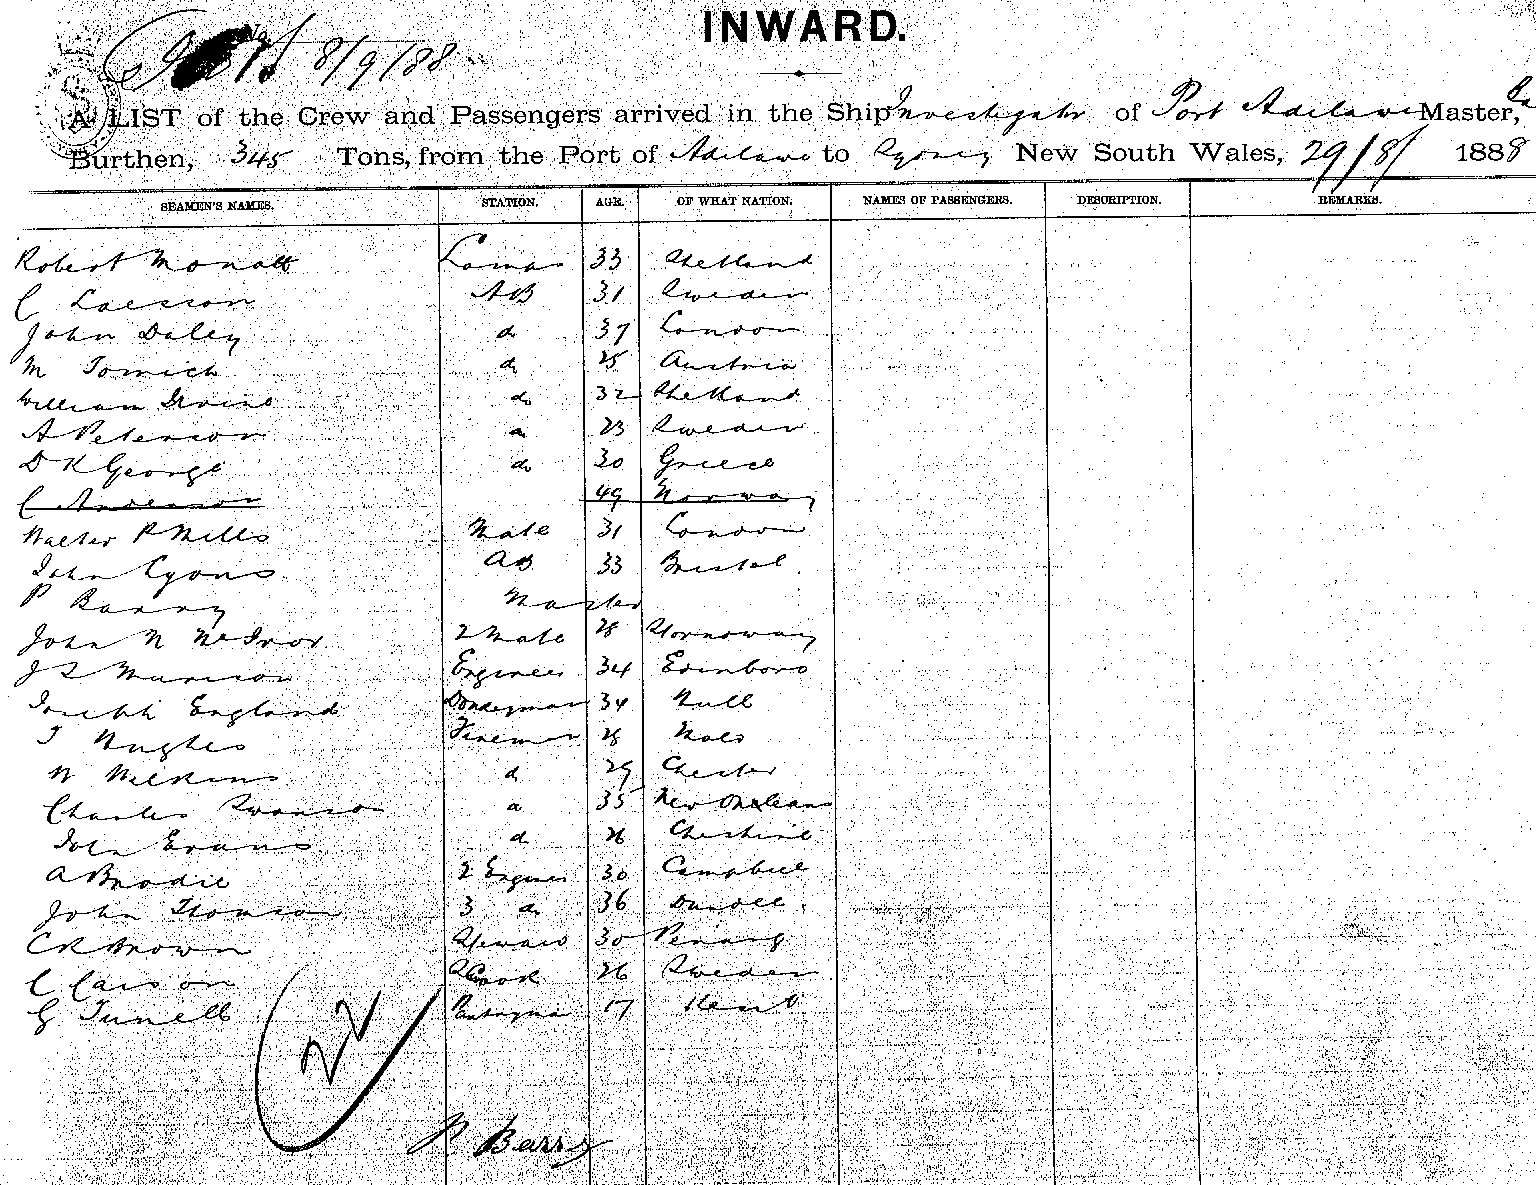 INWARD.
8/9/88
A LIST of the Crew and Passengers arrived in the Ship Investigator of Port Adelaide Master,
Burthen, 345 Tons, from the Port of Adelaide to Sydney New South Wales, 29/8/ 1888
SEAMEN'S NAMES. STATION. AGE. OF WHAT NATION. NAMES OF PASSENGERS. DESCRIPTION. REMARKS.
Robert 33 Shetland
C AB 31 Sweden
John Daley do 37 London
M Tomich do 25 Austria
William Irvine do 32 Shetland
A Peterson do 23 Sweden
D K George do 30 Greece
C Anderson 49 Norway
Walter P Mills Mate 31 London
John Lyons AB 33 Bristol
P Barry Master
John N McIvor 2 Mate 28 Stornoway
J S Engineer 34 Edinboro
Joseph England Donkeyman 34 Hull
T Hughes Fireman 28
W Wilkins do 29 Chester
Charles Swanson do 35 New Orleans
John Evans do 26 Cheshire
A Brodie 2 Engineer 30 Campbell
John Thomson 3 do 36 Dundee.
C R Brown Steward 30 Penang
C Carson Cook 26 Sweden
G Tunell 17 Kent
22
P Barry